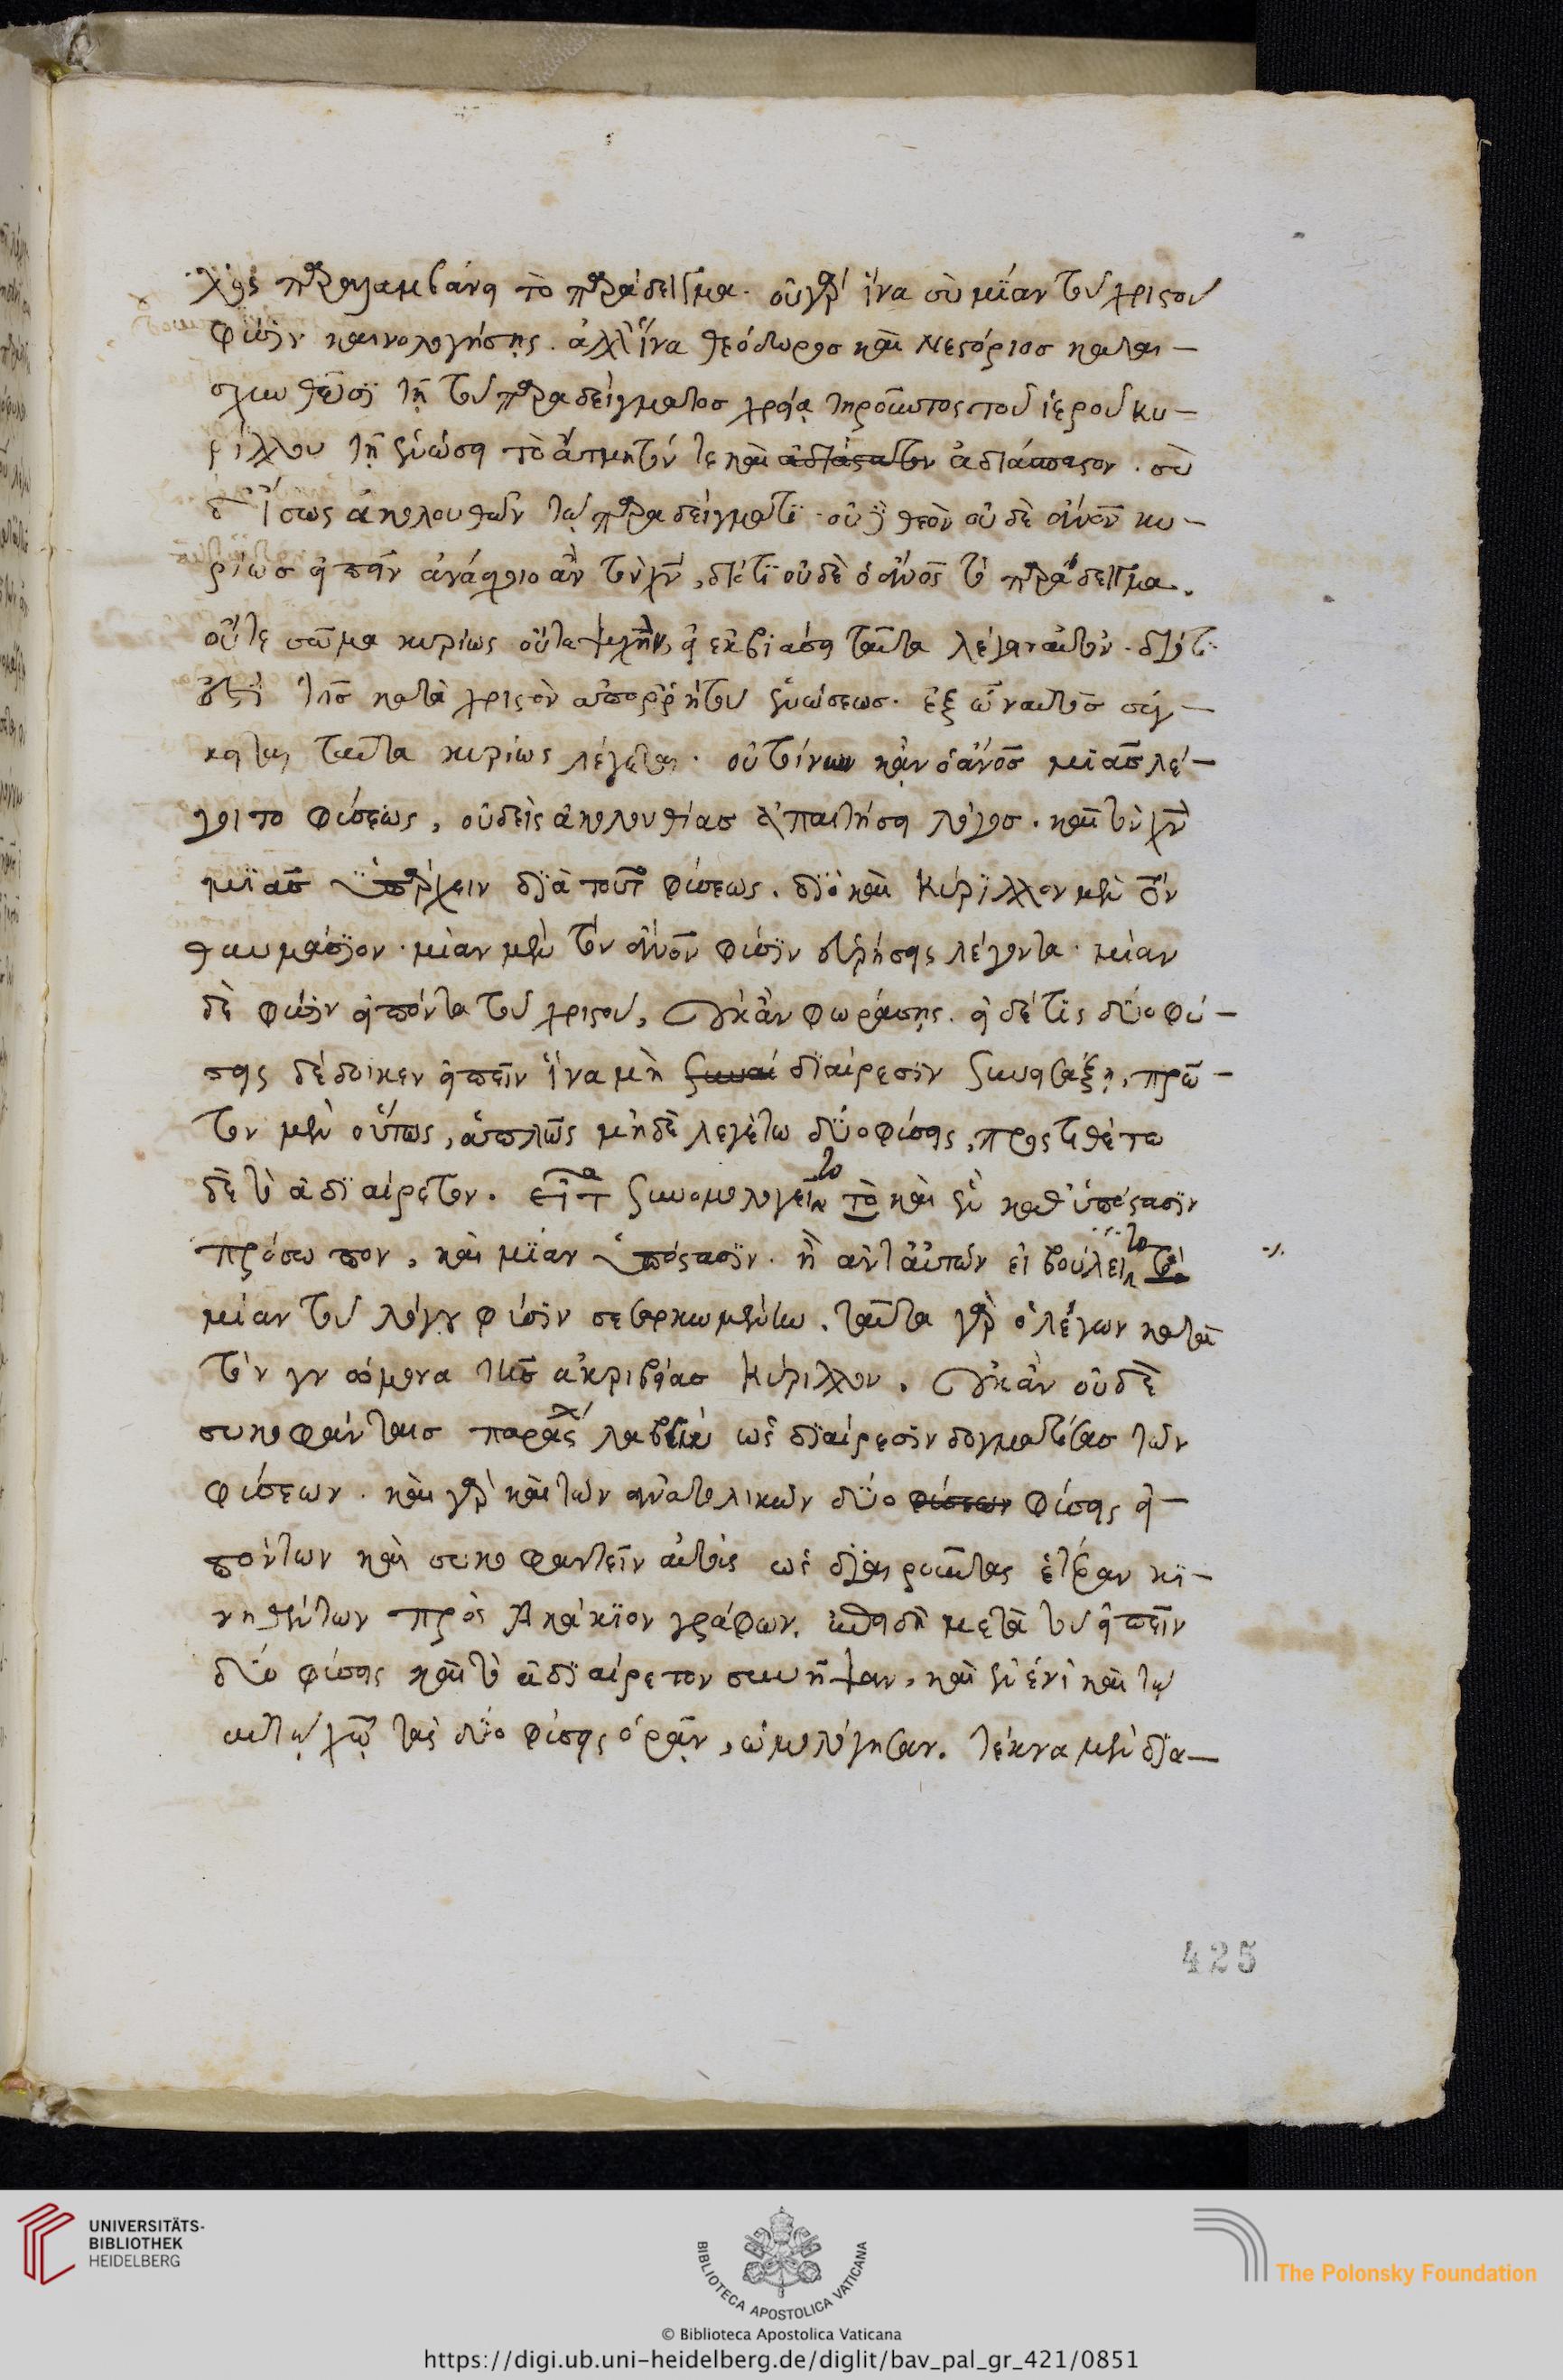 λόγος παραλαμβάνει τὸ παράδειγμα. οὐ γὰρ ἵνα σὺ μίαν τοῦ χριστοῦ
φύσιν καινολογήσῃς. ἀλλ' ἵνα θεόδωρος καὶ Νεστόριος καται-
σχυνθῶσι τῇ τοῦ παραδείγματος χρείᾳ τηροῦντος τοῦ ἱεροῦ κυ-
ρίλλου τῇ ἑνώσει τὸ ἄτμητόν τε καὶ ἀδιάσπαστον. σὺ
δ' ἴσως ἀκολουθῶν τῷ παραδείγματι οὐδὲ θεὸν οὐδὲ ἄνον κυ-
ρίως εἰπεῖν ἀνάσχοιο ἂν τὸν χν, διότι οὐδὲ ὁ ἄνος τὸ παράδειγμα.
οὔτε σῶμα κυρίως οὔτε ψυχὴν, εἰ ἐκβιάσῃ ταῦτα λέγειν αὐτὸν. διότι
ἐπὶ τῆς κατὰ χριστὸν ἀπορρήτου ἑνώσεως. ἐξ ὧν αὐτὸς σύγ-
κειται ταῦτα κυρίως λέγεται. οὐ τοίνυν κἂν ὁ ἄνος μιᾶς λέ-
γοιτο φύσεως, οὐδεὶς ἀκολουθίας ἀπαιτήσει λόγος. καὶ τὸν χν
μιᾶς ὑπάρχειν διὰ τοῦτο φύσεως. διὸ καὶ Κύριλλον μὲν τὸν
θαυμάσιον. μίαν μὲν τὸν ἄνον φύσιν εὑρήσεις λέγοντα. μίαν
δὲ φύσιν εἰπόντα τοῦ χριστοῦ, οὐκ ἂν φωράσῃς. εἰ δέ τις δύο φύ-
σεις δέδοικεν εἰπεῖν ἵνα μὴ διαίρεσιν συνεισάξῃ, πρῶ-
τον μὲν οὕτως, ἁπλῶς μηδὲ λεγέτω δύο φύσεις, προστιθέτω
δὲ τὸ ἀδιαίρετον. εἶτα συνομολογείτω καὶ ἓν καθ' ὑπόστασιν
πρόσωπον, καὶ μίαν ὑπόστασιν. ἢ ἀντ' αὐτῶν εἰ βούλει τὸ
μίαν τοῦ λόγου φύσιν σεσαρκωμένην. ταῦτα γὰρ ὁ λέγων κατὰ
τὸν γνώμονα τῆς ἀκριβείας Κύριλλον. οὐκ ἂν οὐδὲ
συκοφάνταις παράσχοι λαβὴν ὡς διαίρεσιν δογματίσας τῶν
φύσεων. καὶ γὰρ καὶ τῶν ἀνατολικῶν δύο φύσεων φύσεις εἰ-
πόντων καὶ συκοφαντεῖν αὐτοὺς ὡς διαιροῦντας ἑτέρων κι-
νηθέντων πρὸς Ἀκάκιον γράφων. ἐπειδὴ μετὰ τοῦ εἰπεῖν
δύο φύσεις καὶ τὸ ἀδιαίρετον συνῆψαν, καὶ ἐν ἑνὶ καὶ τῷ
αὐτῷ χῷ τὰς δύο φύσεις ὁρᾶν, ὡμολόγησαν. τέκνα μὲν δια-
425
UNIVERSITÄTS-
BIBLIOTHEK
HEIDELBERG
BIBLIOTECA APOSTOLICA VATICANA
The Polonsky Foundation
© Biblioteca Apostolica Vaticana
https://digi.ub.uni-heidelberg.de/diglit/bav_pal_gr_421/0851